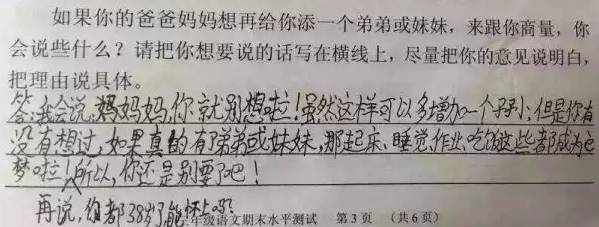 如果你的爸爸妈妈想再给你添一个弟弟或妹妹，来跟你商量，你
会说些什么？请把你想要说的话写在横线上，尽量把你的意见说明白，
把理由说具体。
答：我会说，妈妈妈，你就别想啦！虽然这样可以多增加一个孩子；但是你有
没有想过，如果真的有了弟弟或妹妹，那起床、睡觉、作业、吃饭这些都成为
梦啦！所以，你还是别要了吧！
再说，你都38岁了能怀上吗？
年级语文期末水平测试 第3页 （共6页）